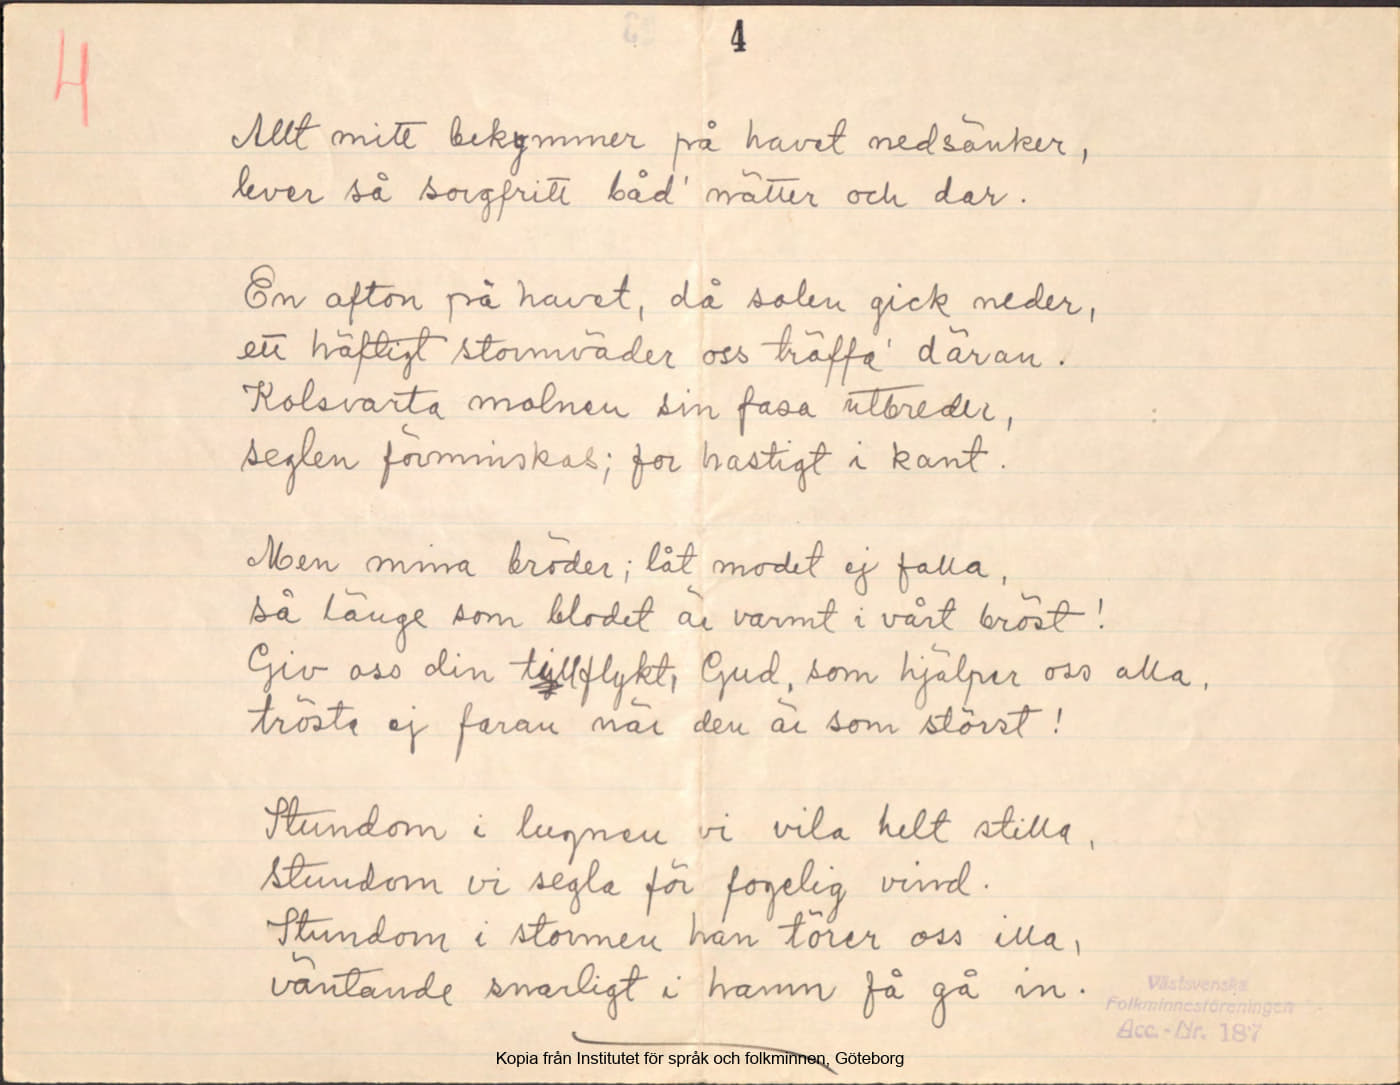 4
4
Allt mitt bekymmer på havet nedsänker,
lever så sorgfritt båd' nätter och dar.
En afton på havet, då solen gick neder,
ett häftigt stormväder oss träffa' däran.
Kolsvarta molnen sin fasa utbreder,
seglen förminskas; for hastigt i kant.
Men mina bröder; låt modet ej falla,
så länge som blodet är varmt i vårt bröst!
Giv oss din tillflykt, Gud, som hjälper oss alla,
trösta ej faran när den är som störst!
Stundom i lugnen vi vila helt stilla,
stundom vi segla för fogelig vind.
Stundom i stormen han törer oss illa,
väntande snarligt i hamn få gå in.
Västsvenska
Folkminnesföreningen
Acc.-Nr. 187
Kopia från Institutet för språk och folkminnen, Göteborg